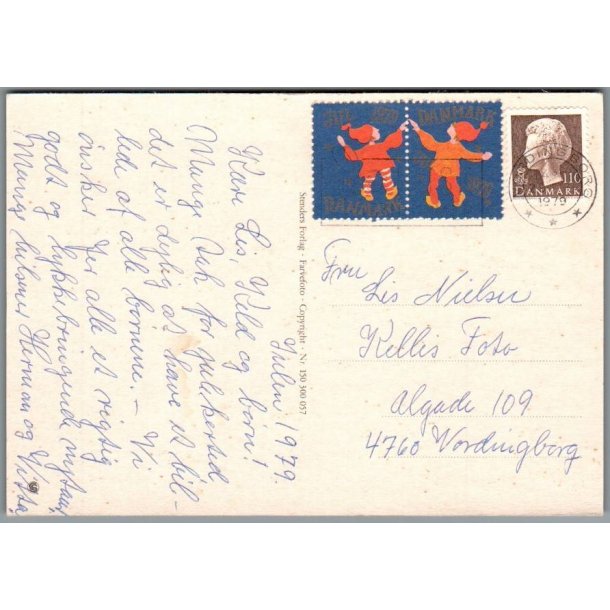 Julen 1979.
Kære Lis, Keld og børn!
Mange Tak for julekortet
det er dejlig at have et bil-
lede af alle børnene. – Vi
ønsker Jer alle et rigtig
godt og lykkebringende nytaar
Mange hilsner Herman og
Stenders Forlag · Farvefoto · Copyright · Nr 150 500 057
JUL 1979 DANMARK
DANMARK 1979
110
DANMARK
1979
Fru
Lis Nielsen
Kellis Foto
Algade 109
4760 Vordingborg